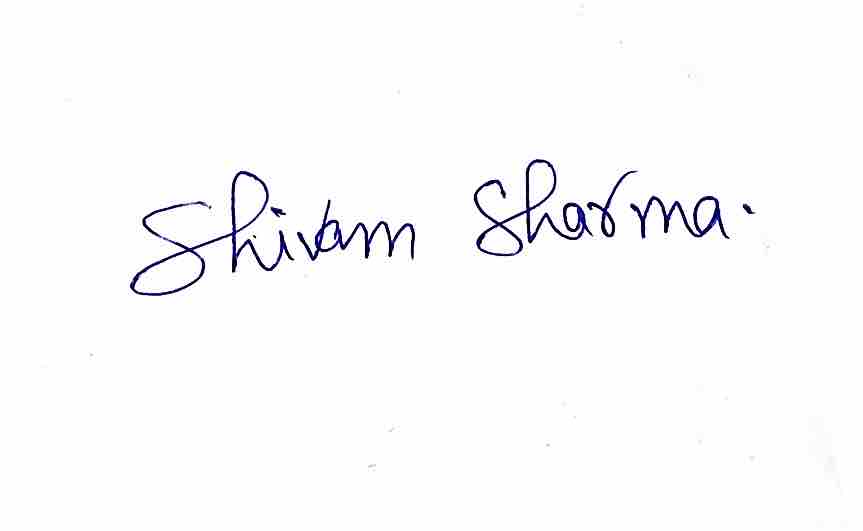 Shivam Sharma.